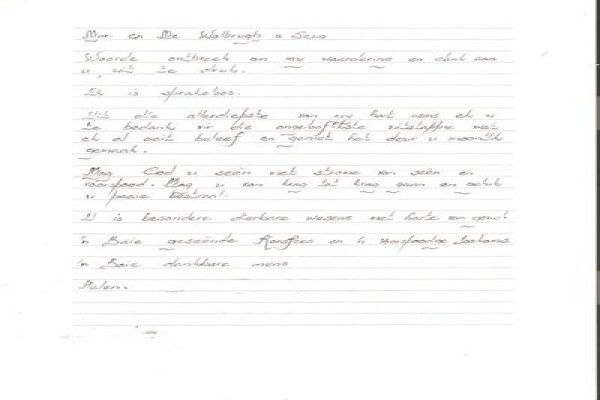 Mnr. en Me Walbrugh & Seun
Woorde ontbreek om my waardering en dank aan
u, uit te druk.
Ek is sprakeloos.
Uit die allerdiepste van my hart wens ek u
te bedank vir die ongelooflikste uitstappie wat
ek al ooit beleef en geniet het deur u moontlik
gemaak.
Mag God u seën met strome van seën en
voorspoed. Mag u van krag tot krag gaan en
u
U is besondere dierbare wesens met harte van goud
'n Baie geseënde Kersfees en 'n voorspoedige toekoms
'n Baie dankbare mens
Helen.